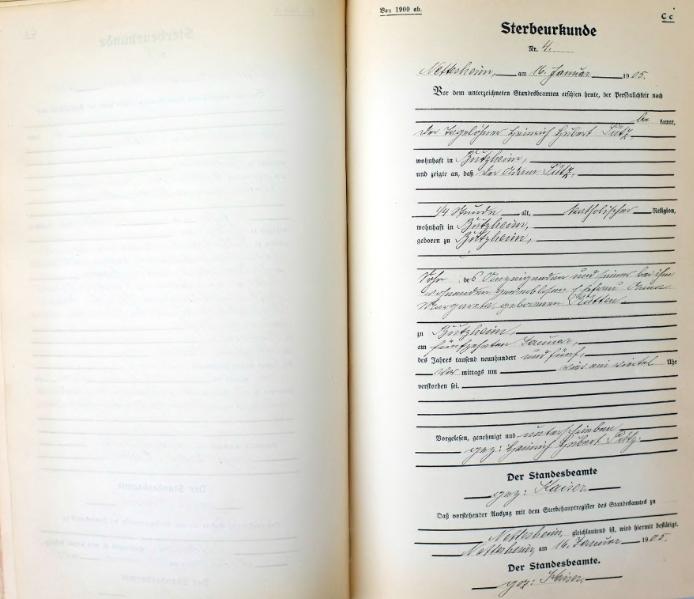 Von 1900 ab.
C c
Sterbeurkunde
Nr. 4.
Nettesheim, am 16. Januar 1905.
Vor dem unterzeichneten Standesbeamten erschien heute, der Persönlichkeit nach
be kannt,
der Tagelöhner Heinrich Hubert Pütz
wohnhaft in Butzheim,
und zeigte an, daß der Adam Pütz,
1/4 Stunde alt, katholischer Religion,
wohnhaft in Butzheim,
geboren zu Butzheim,
Sohn des Anzeigenden und seiner bei ihm
wohnenden gewerblosen Ehefrau Anna
Margareta geborenen
zu Butzheim,
am fünfzehnten Januar,
des Jahres tausend neunhundert und fünf,
Vor mittags um ein viertel Uhr
verstorben sei.
Vorgelesen, genehmigt und unterschrieben
gez: Heinrich Hubert Pütz.
Der Standesbeamte
gez: Kaiser
Daß vorstehender Auszug mit dem Sterbehauptregister des Standesamts zu
Nettesheim, gleichlautend ist, wird hiermit bestätigt.
Nettesheim, am 16. Januar 1905.
Der Standesbeamte.
gez: Kaiser